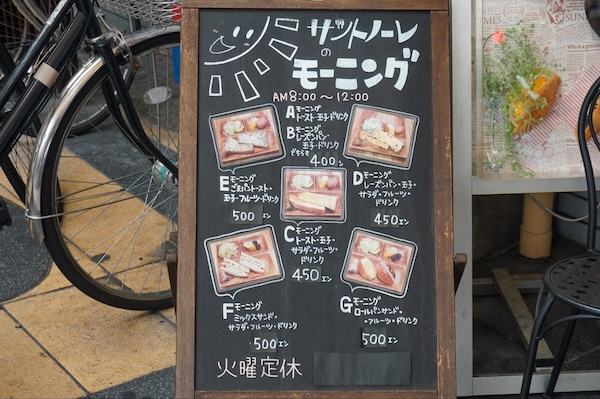 サントノーレ
の
モーニング
AM8:00〜12:00
Aモーニング
トースト・玉子・ドリンク
Bモーニング
レーズンパン・
玉子・ドリンク
どちらも 400エン
Eモーニング
ごまパントースト・
玉子・フルーツ・ドリンク
500エン
Dモーニング
レーズンパン・玉子・
サラダ・フルーツ・
ドリンク
450エン
Cモーニング
トースト・玉子・
サラダ・フルーツ・
ドリンク
450エン
Fモーニング
ミックスサンド・
サラダ・フルーツ・ドリンク
500エン
Gモーニング
ロールパンサンド・
・フルーツ・ドリンク
500エン
火曜定休
TIMES
SUN